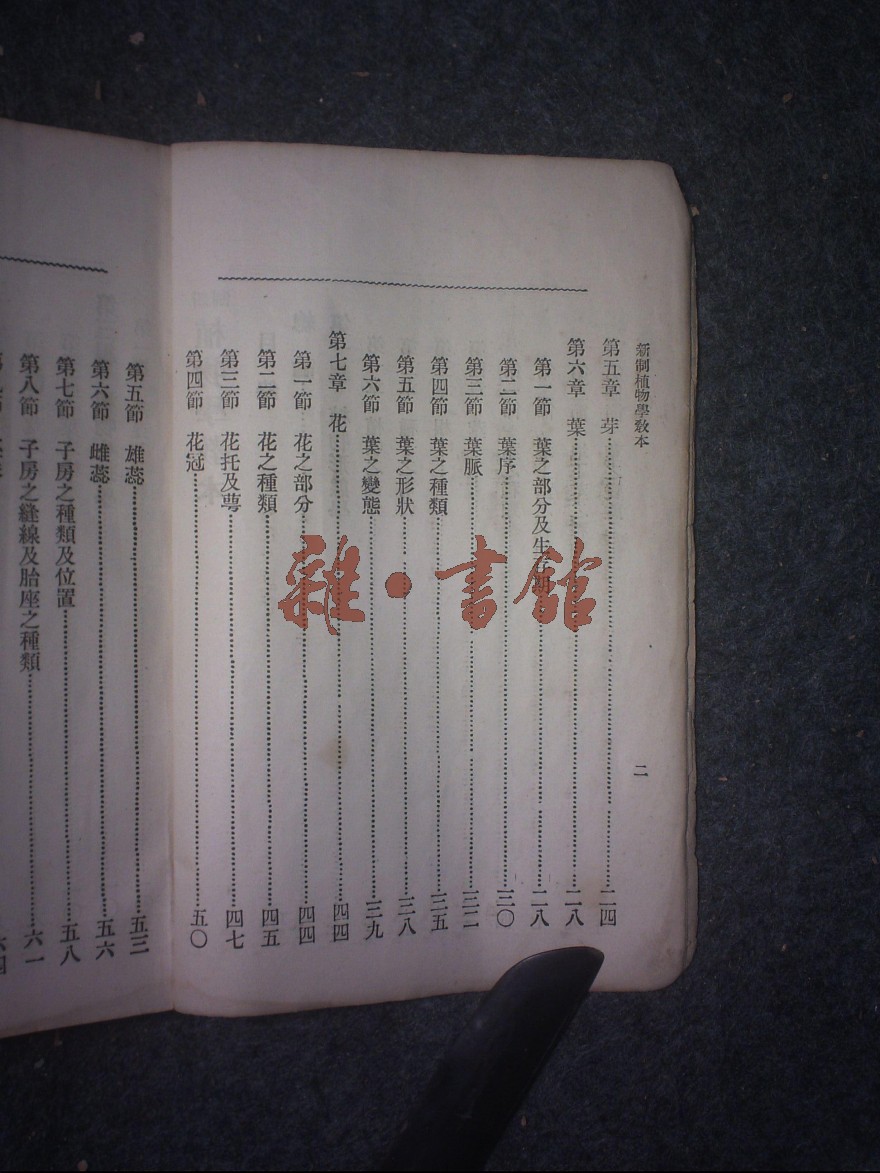 新制植物學教本
二
第五章 芽……二四
第六章 葉……二八
第一節 葉之部分及生存期……二八
第二節 葉序……三〇
第三節 葉脈……三二
第四節 葉之種類……三五
第五節 葉之形狀……三八
第六節 葉之變態……三九
第七章 花……四四
第一節 花之部分……四四
第二節 花之種類……四五
第三節 花托及萼……四七
第四節 花冠……五〇
第五節 雄蕊……五三
第六節 雌蕊……五六
第七節 子房之種類及位置……五八
第八節 子房之縫線及胎座之種類……六一
雜·書館